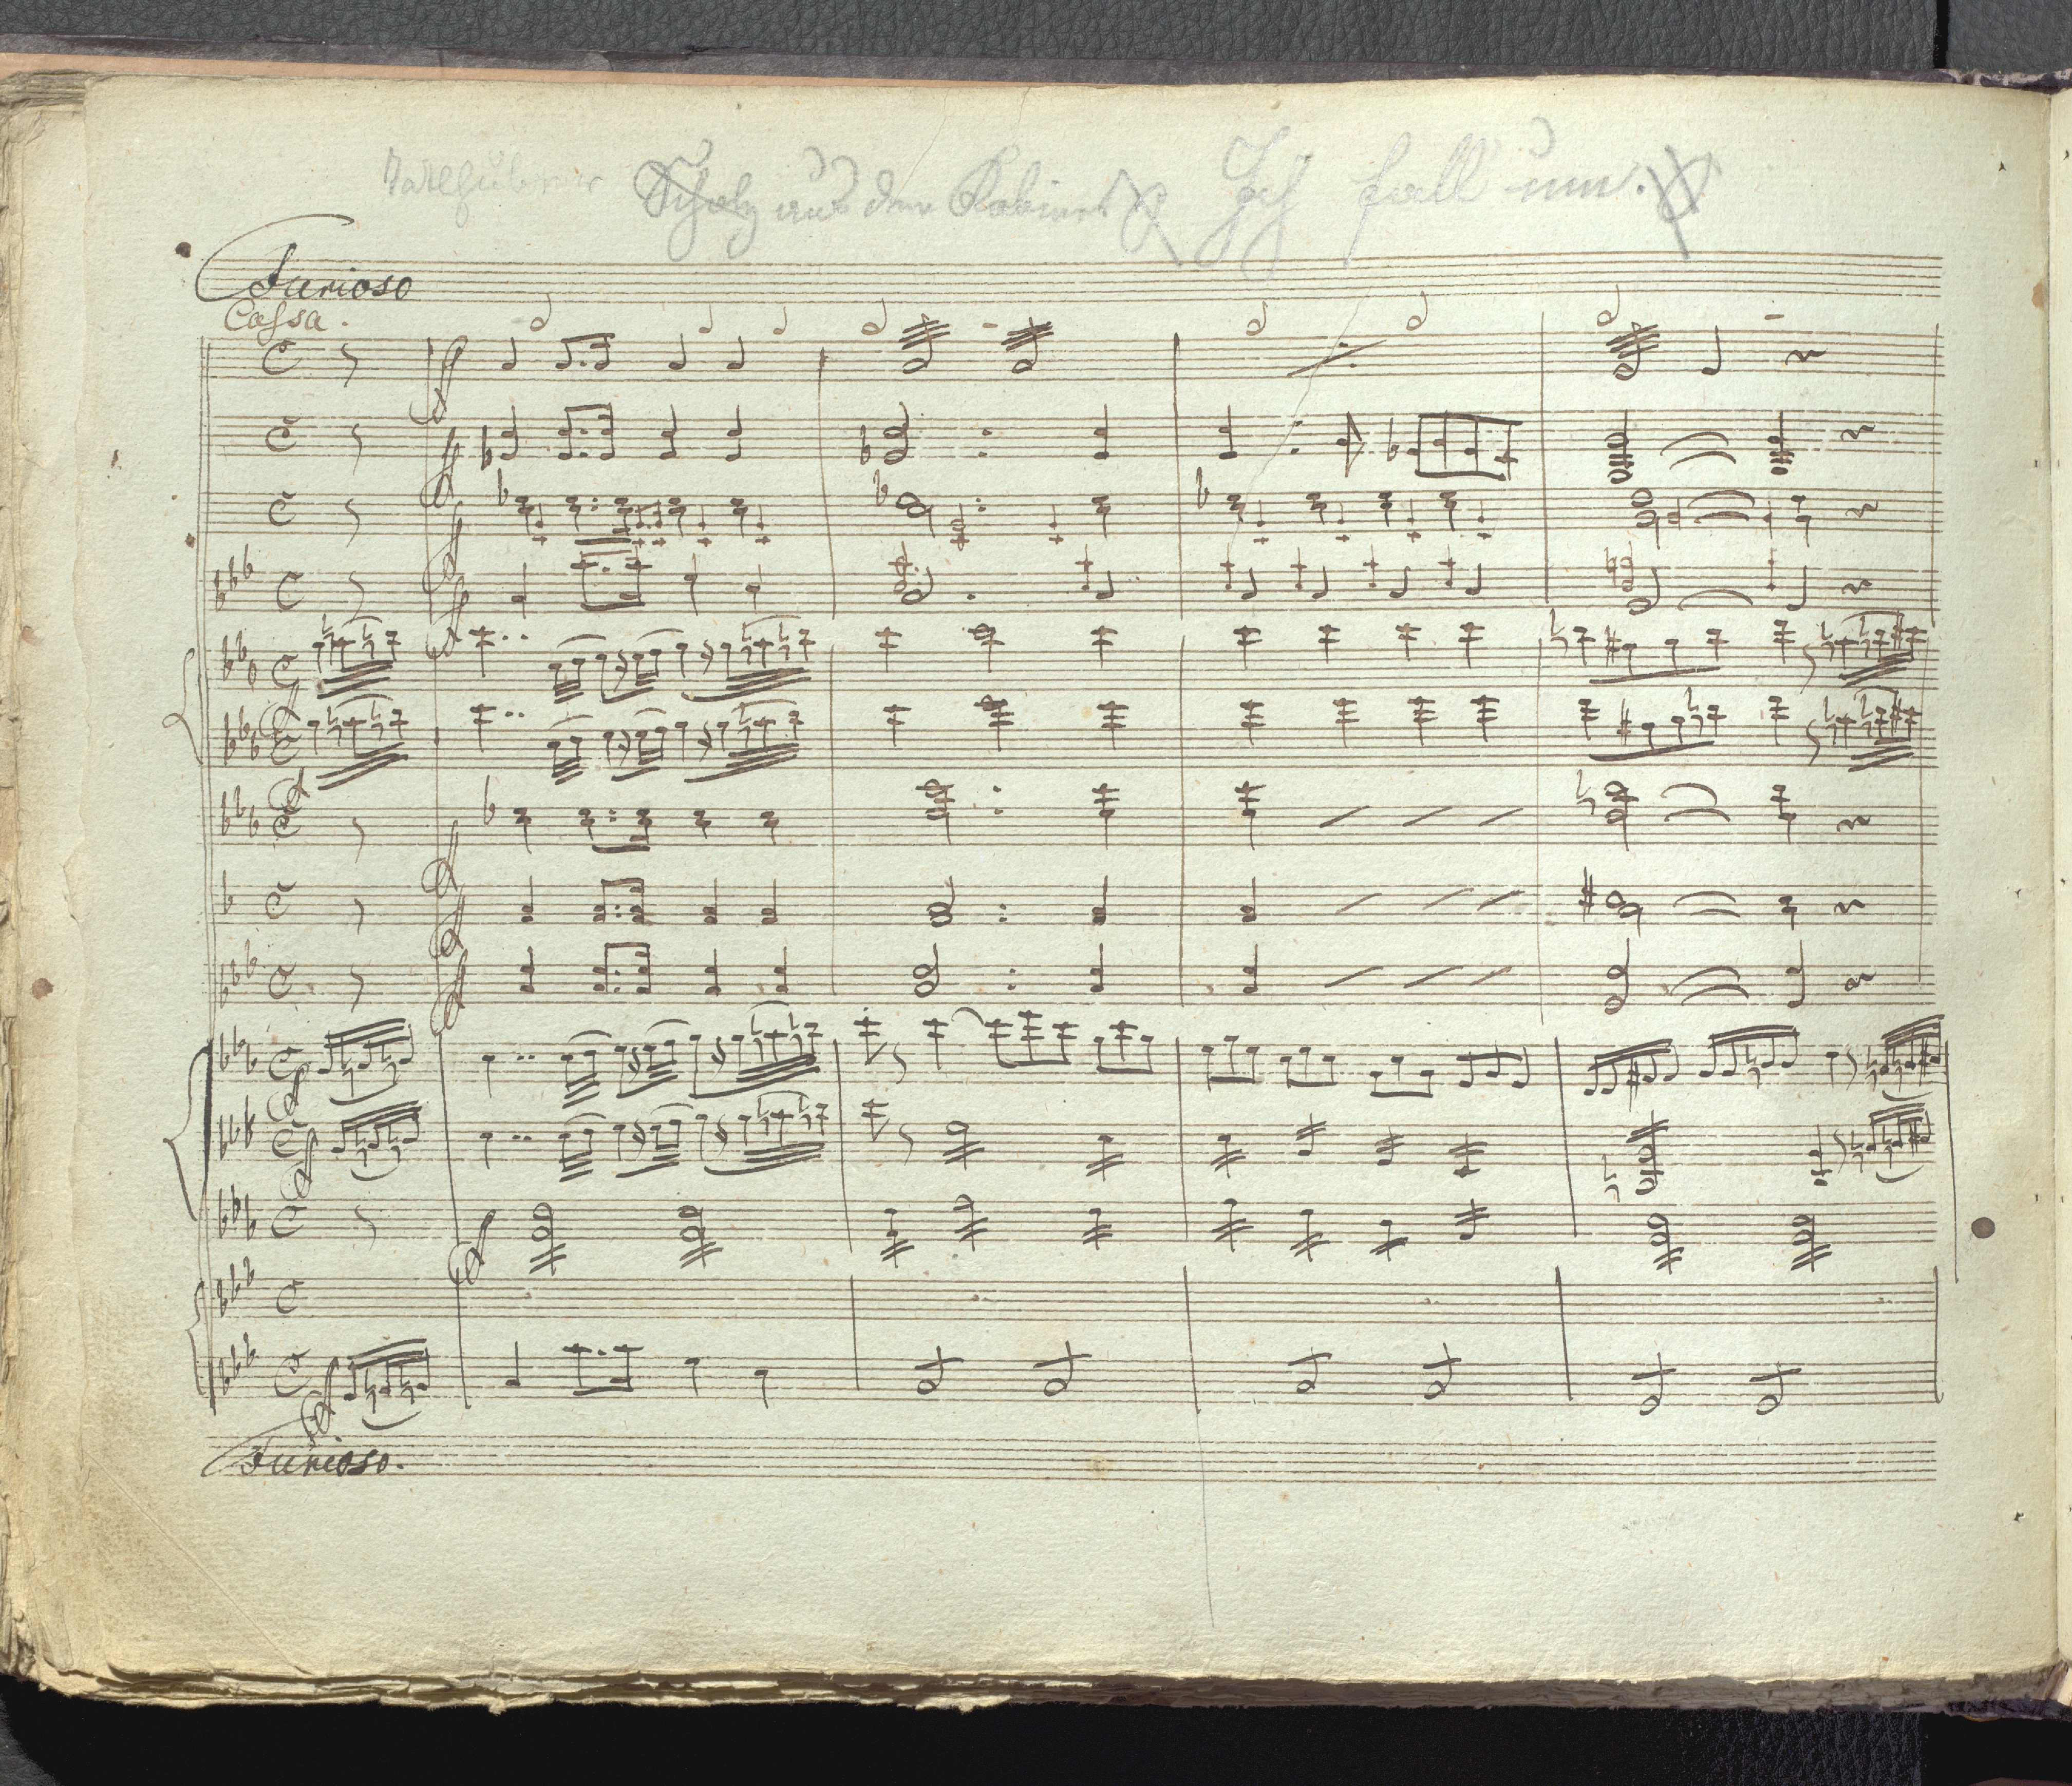 aus dem Kabinet Ich fall um.
Furioso
Cassa.
Furioso.